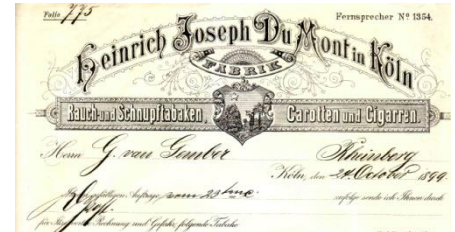 Folio 775
Fernsprecher Nº 1354.
Heinrich Joseph Du Mont in Köln
FABRIK
Rauch- und Schnupftabaken, Carotten und Cigarren.
Herrn G. van Gember Rheinberg
Köln, den 24 October 1899.
gefälligen Auftrage vom 23 zufolge sende ich Ihnen durch
Post
für Rechnung und Gefahr, folgende Tabake